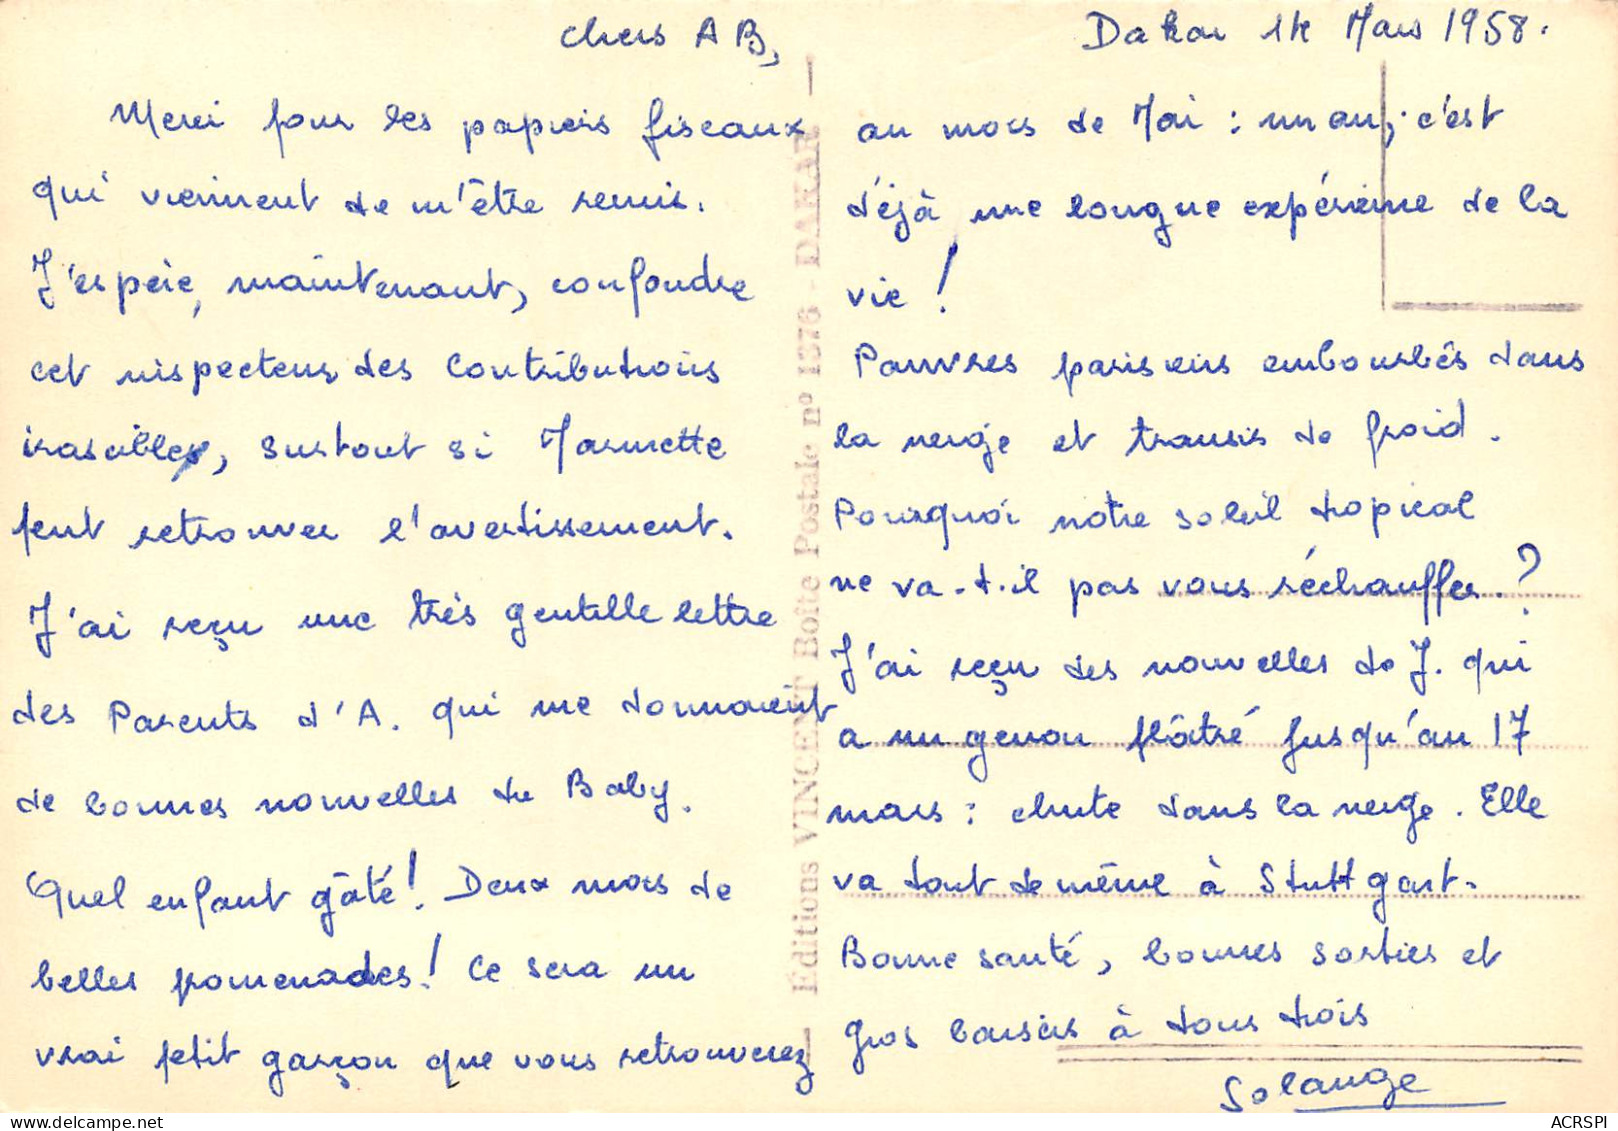 Chers AB,
Merci pour les papiers fiscaux
qui viennent de m'être remis.
J'espère, maintenant, confondre
cet inspecteur des Contributions
irascible, surtout si Marmette
peut retrouver l'avertissement.
J'ai reçu une très gentille lettre
des Parents d'A. qui me donnaient
de bonnes nouvelles du Baby.
Quel enfant gâté! Deux mois de
belles promenades! Ce sera un
vrai petit garçon que vous retrouverez
Editions VINCENT Boîte Postale nº 1376 - DAKAR
Dakar 14 Mars 1958.
au mois de Mai : un an, c'est
déjà une longue expérience de la
vie !
Pauvres parisiens embourbés dans
la neige et transis de froid.
Pourquoi notre soleil tropical
ne va-t-il pas vous réchauffer?
J'ai reçu des nouvelles de J. qui
a un genou plâtré jusqu'au 17
mars : chute dans la neige. Elle
va tout de même à Stuttgart.
Bonne santé, bonnes sorties et
gros baisers à tous trois
Solange
ACRSPI